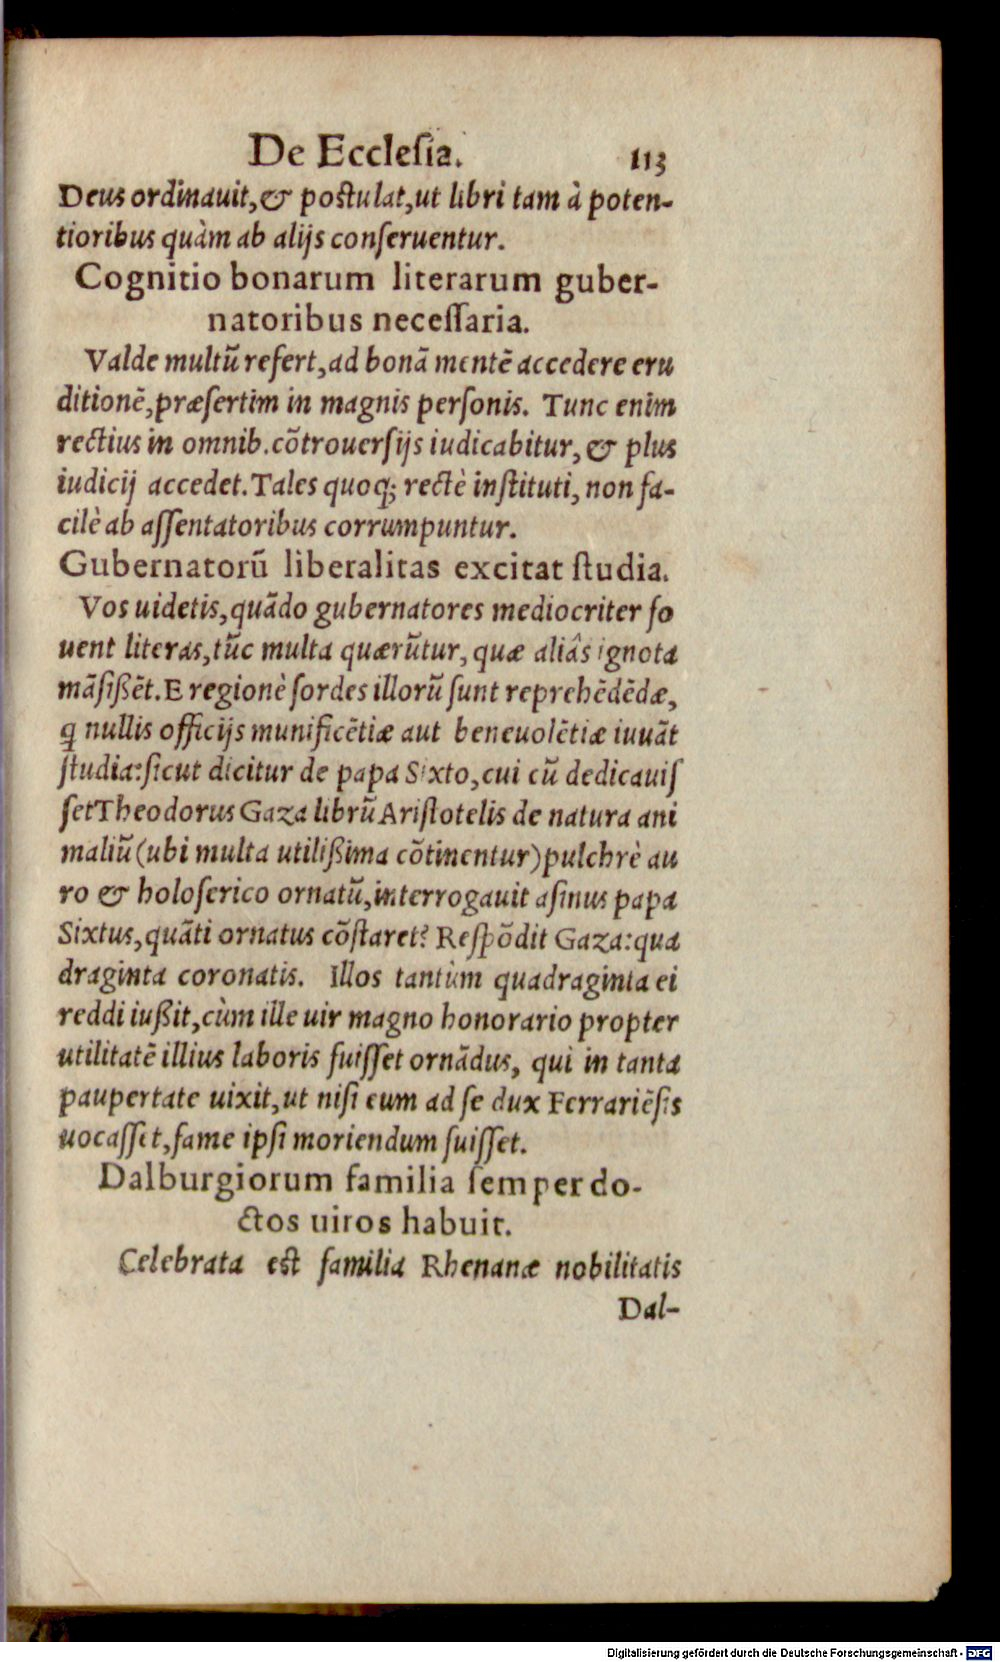 De Ecclesia. 113
Deus ordinauit, & postulat, ut libri tam à poten-
tioribus quàm ab alijs conseruentur.
Cognitio bonarum literarum guber-
natoribus necessaria.
Valde multũ refert, ad bonã mentẽ accedere eru
ditionẽ, præsertim in magnis personis. Tunc enim
rectius in omnib. cõtrouersijs iudicabitur, & plus
iudicij accedet. Tales quoq; rectè instituti, non fa-
cilè ab assentatoribus corrumpuntur.
Gubernatorũ liberalitas excitat studia.
Vos uidetis, quãdo gubernatores mediocriter fo
uent literas, tũc multa quærũtur, quæ aliâs ignota
mãsißẽt. E regionè sordes illorũ sunt reprehẽdẽdæ,
q̃ nullis officijs munificẽtiæ aut beneuolẽtiæ iuuãt
studia: sicut dicitur de papa Sixto, cui cũ dedicauis
set Theodorus Gaza librũ Aristotelis de natura ani
maliũ (ubi multa utilißima cõtinentur) pulchrè au
ro & holoserico ornatũ, interrogauit asinus papa
Sixtus, quãti ornatus cõstaret? Respõdit Gaza: qua
draginta coronatis. Illos tantùm quadraginta ei
reddi iußit, cùm ille uir magno honorario propter
utilitatẽ illius laboris fuisset ornãdus, qui in tanta
paupertate uixit, ut nisi eum ad se dux Ferrariẽsis
uocasset, fame ipsi moriendum fuisset.
Dalburgiorum familia semper do-
ctos uiros habuit.
Celebrata est familia Rhenanæ nobilitatis
Dal-
Digitalisierung gefördert durch die Deutsche Forschungsgemeinschaft - DFG